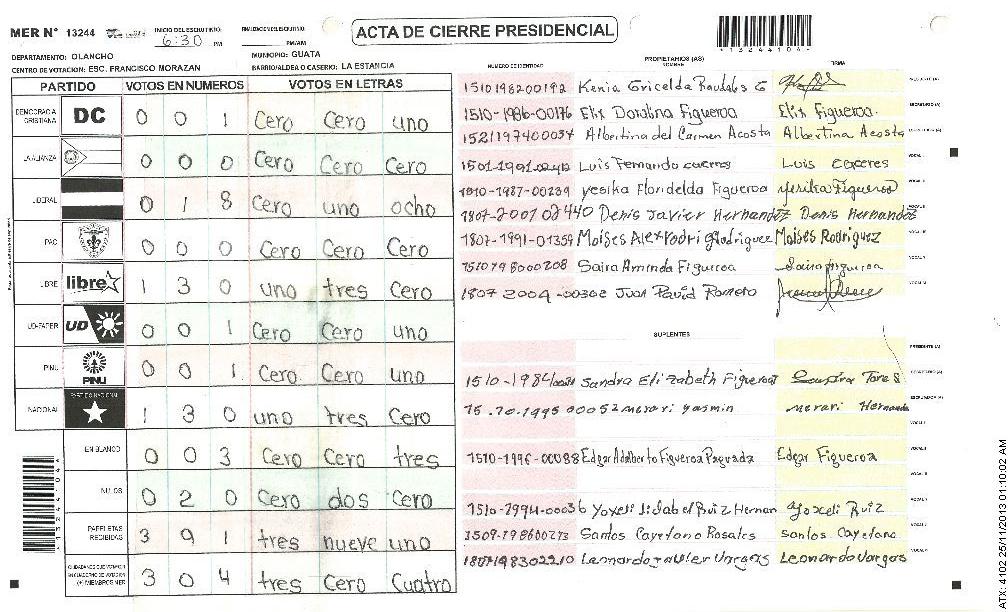 MER N° 13244 INICIO DEL ESCRUTINIO: 6:30 PM FINALIZACION DEL ESCRUTINIO: PM/AM
ACTA DE CIERRE PRESIDENCIAL
DEPARTAMENTO: OLANCHO MUNICIPIO: GUATA
CENTRO DE VOTACION: ESC. FRANCISCO MORAZAN BARRIO/ALDEA O CASERIO: LA ESTANCIA
PARTIDO VOTOS EN NUMEROS VOTOS EN LETRAS
DEMOCRACIA CRISTIANA DC 0 0 1 Cero Cero uno
LA ALIANZA 0 0 0 Cero Cero Cero
LIBERAL 0 1 8 Cero uno ocho
PAC 0 0 0 Cero Cero Cero
LIBRE libre 1 3 0 uno tres Cero
UD-FAPER UD 0 0 1 Cero Cero uno
PINU PINU 0 0 1 Cero Cero uno
NACIONAL PARTIDO NACIONAL 1 3 0 uno tres Cero
EN BLANCO 0 0 3 Cero Cero tres
NULOS 0 2 0 Cero dos Cero
PAPELETAS RECIBIDAS 3 9 1 tres nueve uno
CIUDADANOS QUE VOTARON EN CUADERNO DE VOTACION (+) MIEMBROS MER 3 0 4 tres Cero Cuatro
13244104
PROPIETARIOS (AS)
NUMERO DE IDENTIDAD NOMBRE FIRMA
1510198200192 Kenia Gricelda Raudales G PRESIDENTE (A)
1510-1986-00176 Elix Doralina Figueroa Elix Figueroa SECRETARIO (A)
1521197400034 Albertina del Carmen Acosta Albertina Acosta
Luis Fernando caceres Luis caceres VOCAL I
1510-1987-00239 yesika Floridelda Figueroa yesika Figueroa
1807-2001 02440 Denis Javier Hernandez Denis Hernandez
1807-1991-01359 Moises Rodriguez
1510198000208 Saira Aminda Figueroa Saira Figueroa
1807 2004-00302 Juan David Romero
SUPLENTES
PRESIDENTE (A)
Sandra Elizabeth Figueroa SECRETARIO (A)
merari yasmin merari Hernande
1510-1996-00088 Edgar Adalberto Figueroa Edgar Figueroa
1510-1994-00036 Yoxeli Jidabel Ruiz Hernan Yoxeli Ruiz
1509-198600273 Santos Cayetano Rosales santos Cayetano
1807198302210 Leonardo Javier Vargas Leonardo Vargas
ATX: 4102 25/11/2013 01:10:02 AM